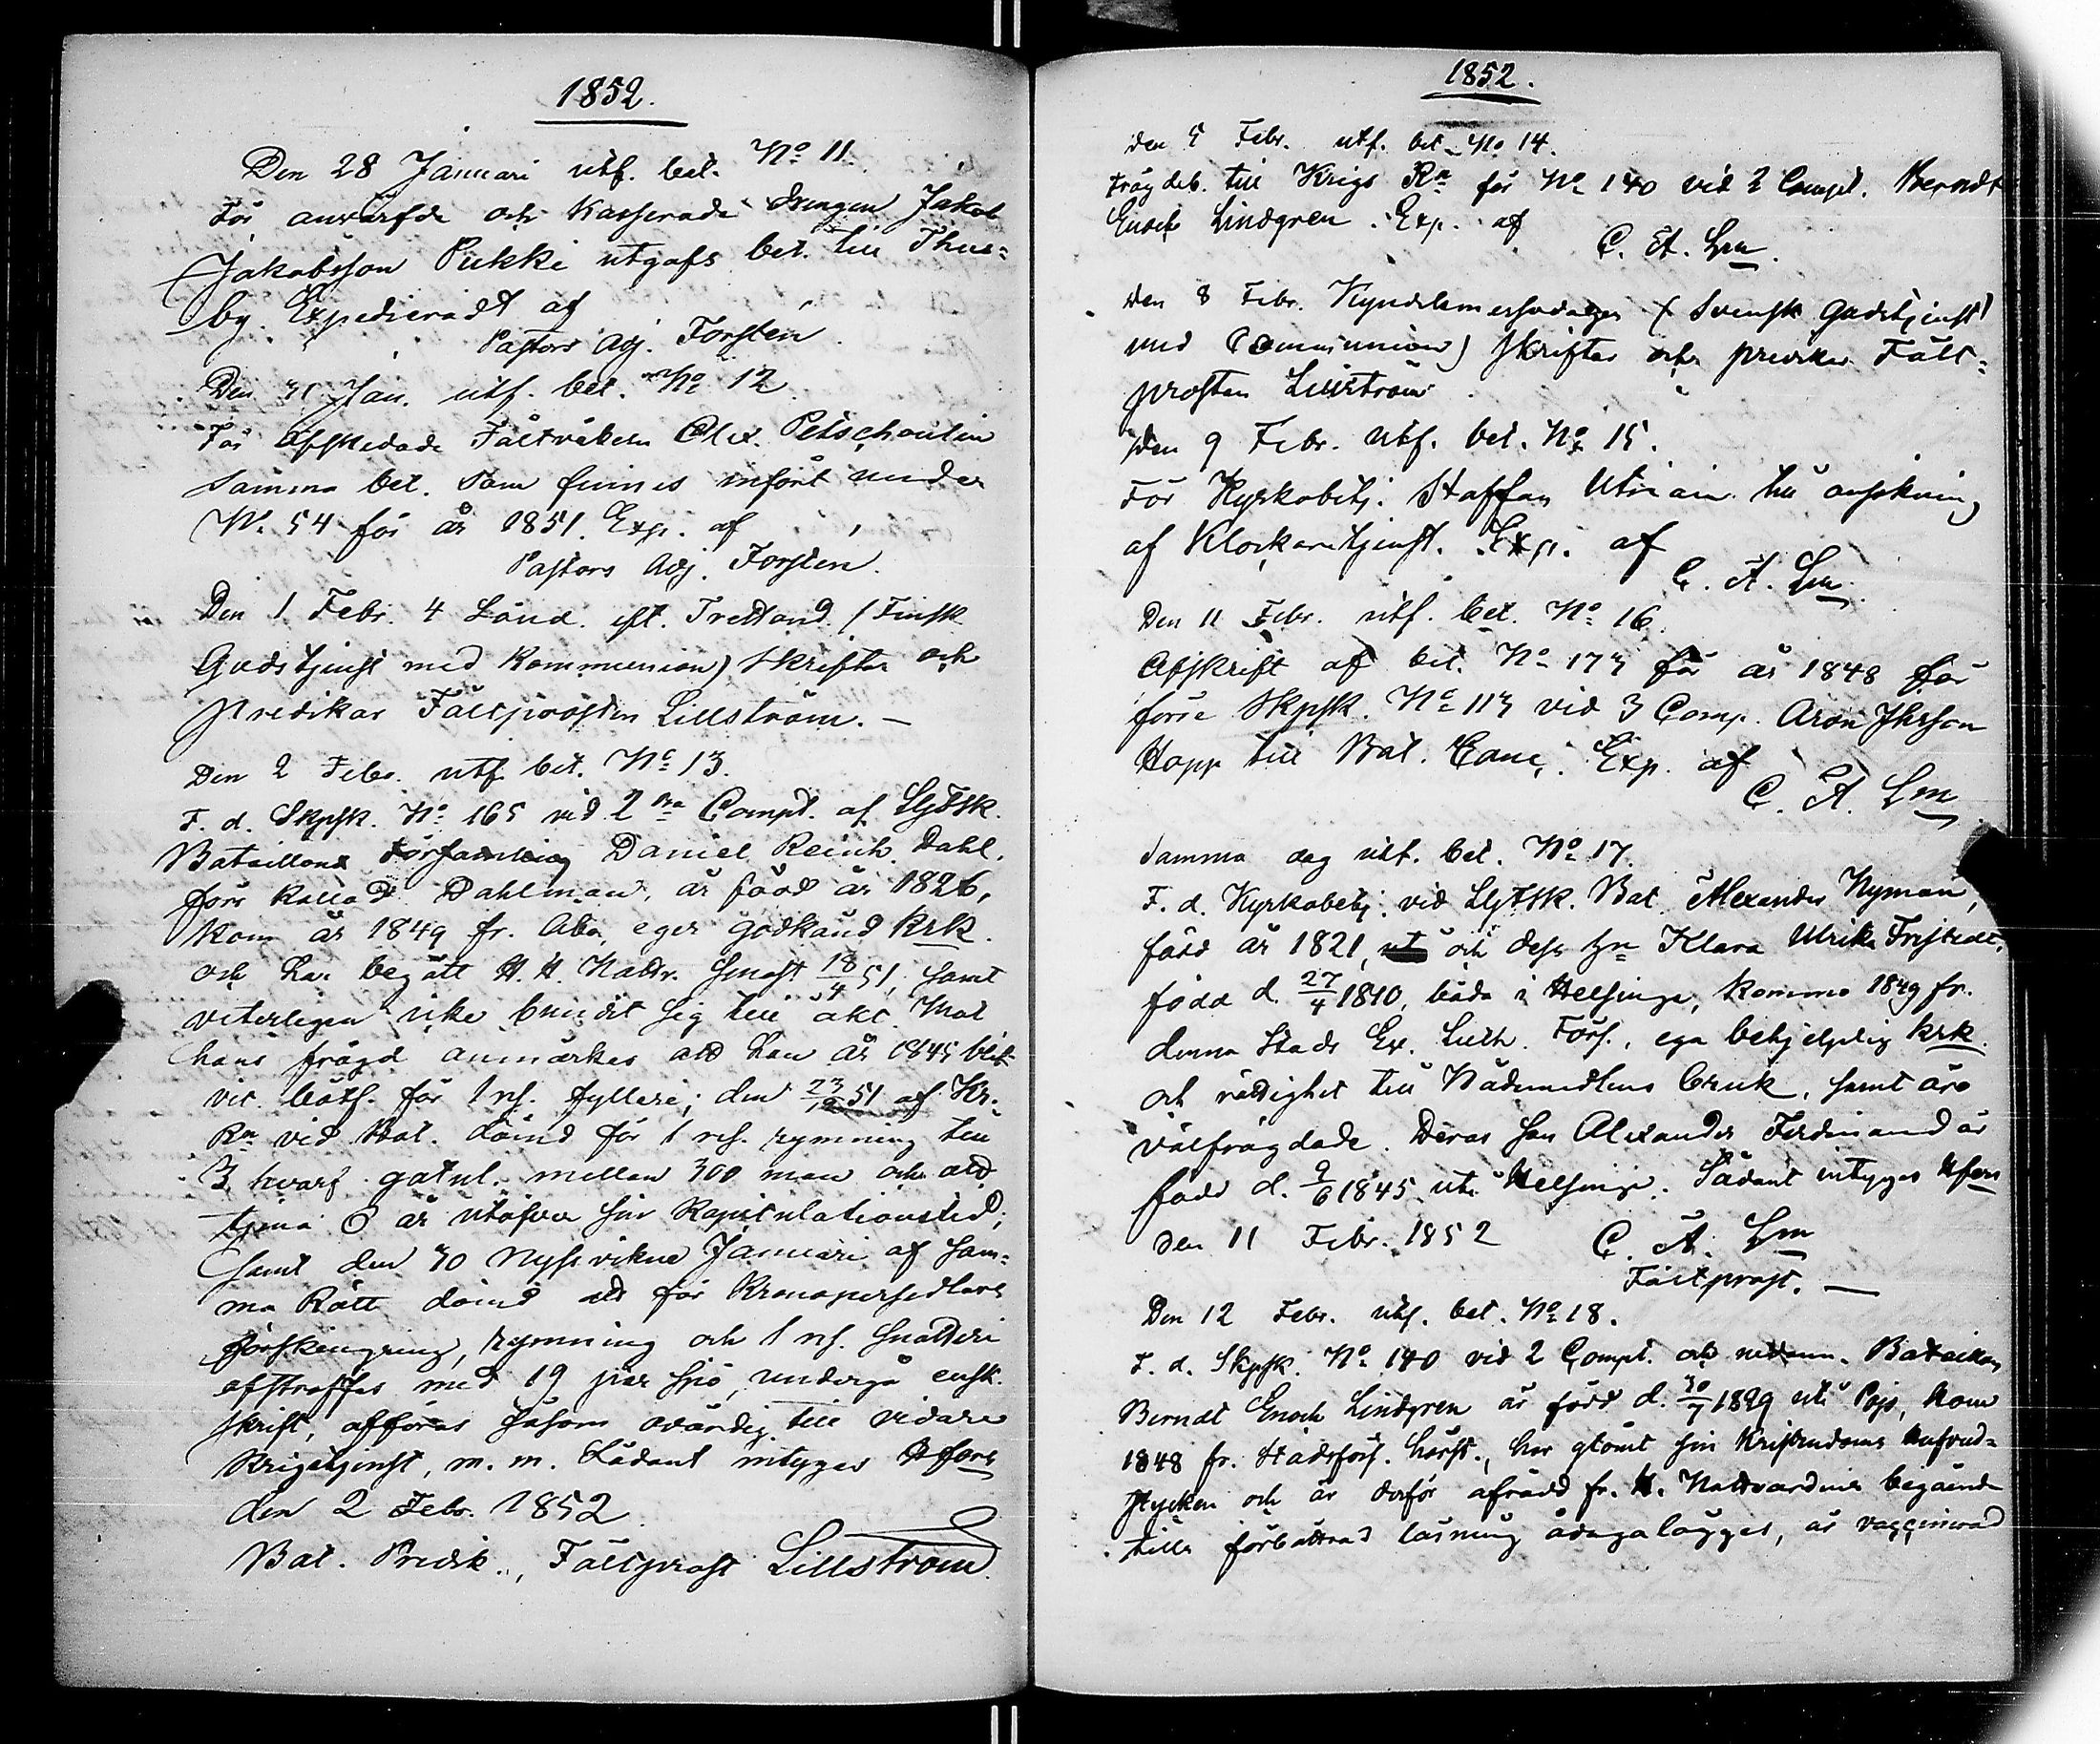 1852.
Den 28 Januari utf. bet. No 11.
För anvärfde och Kasserade Drengen Jakob
Jakobsson Pukki utgafs bet. till Thus-
by. Expedieradt af
Pastors Adj. Forstén.
Den 31 Jan. utf. bet. No 12.
För Afskedade Fältväbeln Alex. Petschoutin
Samma bet. som finnes infördt under
No 54 för år 1851. Exp. af
Pastors Adj. Forstén.
Den 1 Febr. 4 Sönd. eft. Trettond. (Finsk
Gudstjenst med Kommunion) Skriftar och
predikar Fältprosten Lillström. —
Den 2 Febr. utf. bet. No 13.
F. d. Skpsk. No 165 vid 2dra Compt. af
Bataillons Församling Daniel Reinh. Dahl.
förr kallad Dahlman, är född år 1826,
kom år 1849 fr. Åbo, eger godkänd krk.
och har begått H. H. Nattv. senast 18/4 51, samt
veterligen icke bundit sig till äkt. Mot
hans frägd anmärkes att han år 1845 blif-
vit bötf. för 1 res. fylleri; den 23/12 51 af Kr.
Rn vid Bat. dömd för 1 res. rymning till
3 hvarf gatul. mellan 300 man och att
tjena 6 år utöfver sin Kapitulationstid;
samt den 30 nyssvikne Januari af sam-
ma Rätt dömd att för Kronopersedlars
förskingring, rymning och 1 res. snatteri
afstraffas med 19 par spö, undergå ensk.
skrift, afföras såsom ovärdig till vidare
Krigstjenst, m. m. Sådant intygas Hfors
den 2 Febr. 1852.
Bat. Predik., Fältprost Lillström.
1852.
Den 5 Febr. utf. bet. No 14.
Frägdeb. till Krigs Rn för No 140 vid 2 Compt. Berndt
Enoch Lindgren. Exp. af
C. A. Lm.
Den 8 Febr. Kyndelsmessodagen (Svensk Gudstjenst
med Communion) Skriftar och predikar Fält-
prosten Lillström.
Den 9 Febr. utf. bet. No 15.
För Kyrkobetj. Staffan Utriain till ansökning
af Klockaretjenst. Exp. af
C. A. Lm.
Den 11 Febr. utf. bet. No 16.
Afskrift af bet. No 173 för år 1848 för
förre Skpsk. No 113 vid 3 Comp. Aron
Hopp till Bat. Canc. Exp. af
C. A. Lm
Samma dag utf. bet. No 17.
F. d. Kyrkobetj. vid Bat. Alexander Nyman,
född år 1821, och dess hu Klara Ulrika
född d. 27/4 1810, båda i Helsinge, kommo 1849 fr.
denna Stads Ev. Luth. Förs., ega behjelplig krk.
och rättighet till Nådemedlens bruk, samt äro
välfrägdade. Deras son Alexander Ferdinand är
född d. 9/6 1845 uti Helsinge. Sådant intygas Hfors
den 11 Febr. 1852 C. A. Lm
Fältprost. —
Den 12 Febr. utf. bet. No 18.
F. d. Skpsk. No 140 vid 2 Compt. af Bataillon
Berndt Enoch Lindgren är född d. 30/7 1829 uti Pojo, kom
1848 fr. Stadsförs. härst., har glömt sin Kristendoms hufvud-
stycken och är derför afrådd fr. H. Nattvardens begående
tills förbättrad läsning ådagalägges, är vaccinerad